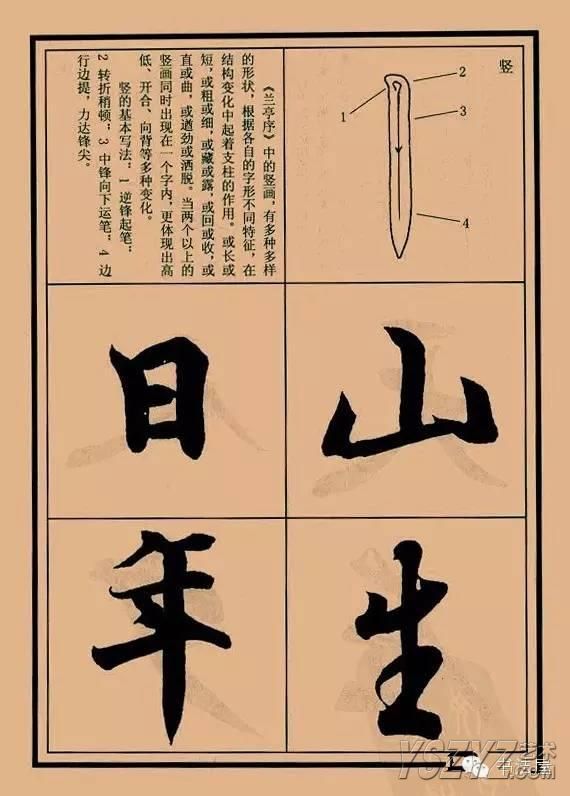 竖
1
2
3
4
《兰亭序》中的竖画，有多种多样
的形状，根据各自的字形不同特征，在
结构变化中起着支柱的作用。或长或
短，或粗或细，或藏或露，或回或收，或
直或曲，或遒劲或洒脱。当两个以上的
竖画同时出现在一个字内，更体现出高
低、开合、向背等多种变化。
竖的基本写法：1 逆锋起笔；
2 转折稍顿；3 中锋向下运笔；4 边
行边提，力达锋尖。
山
日
生
年
YSZYZ艺术
.COM
书法屋